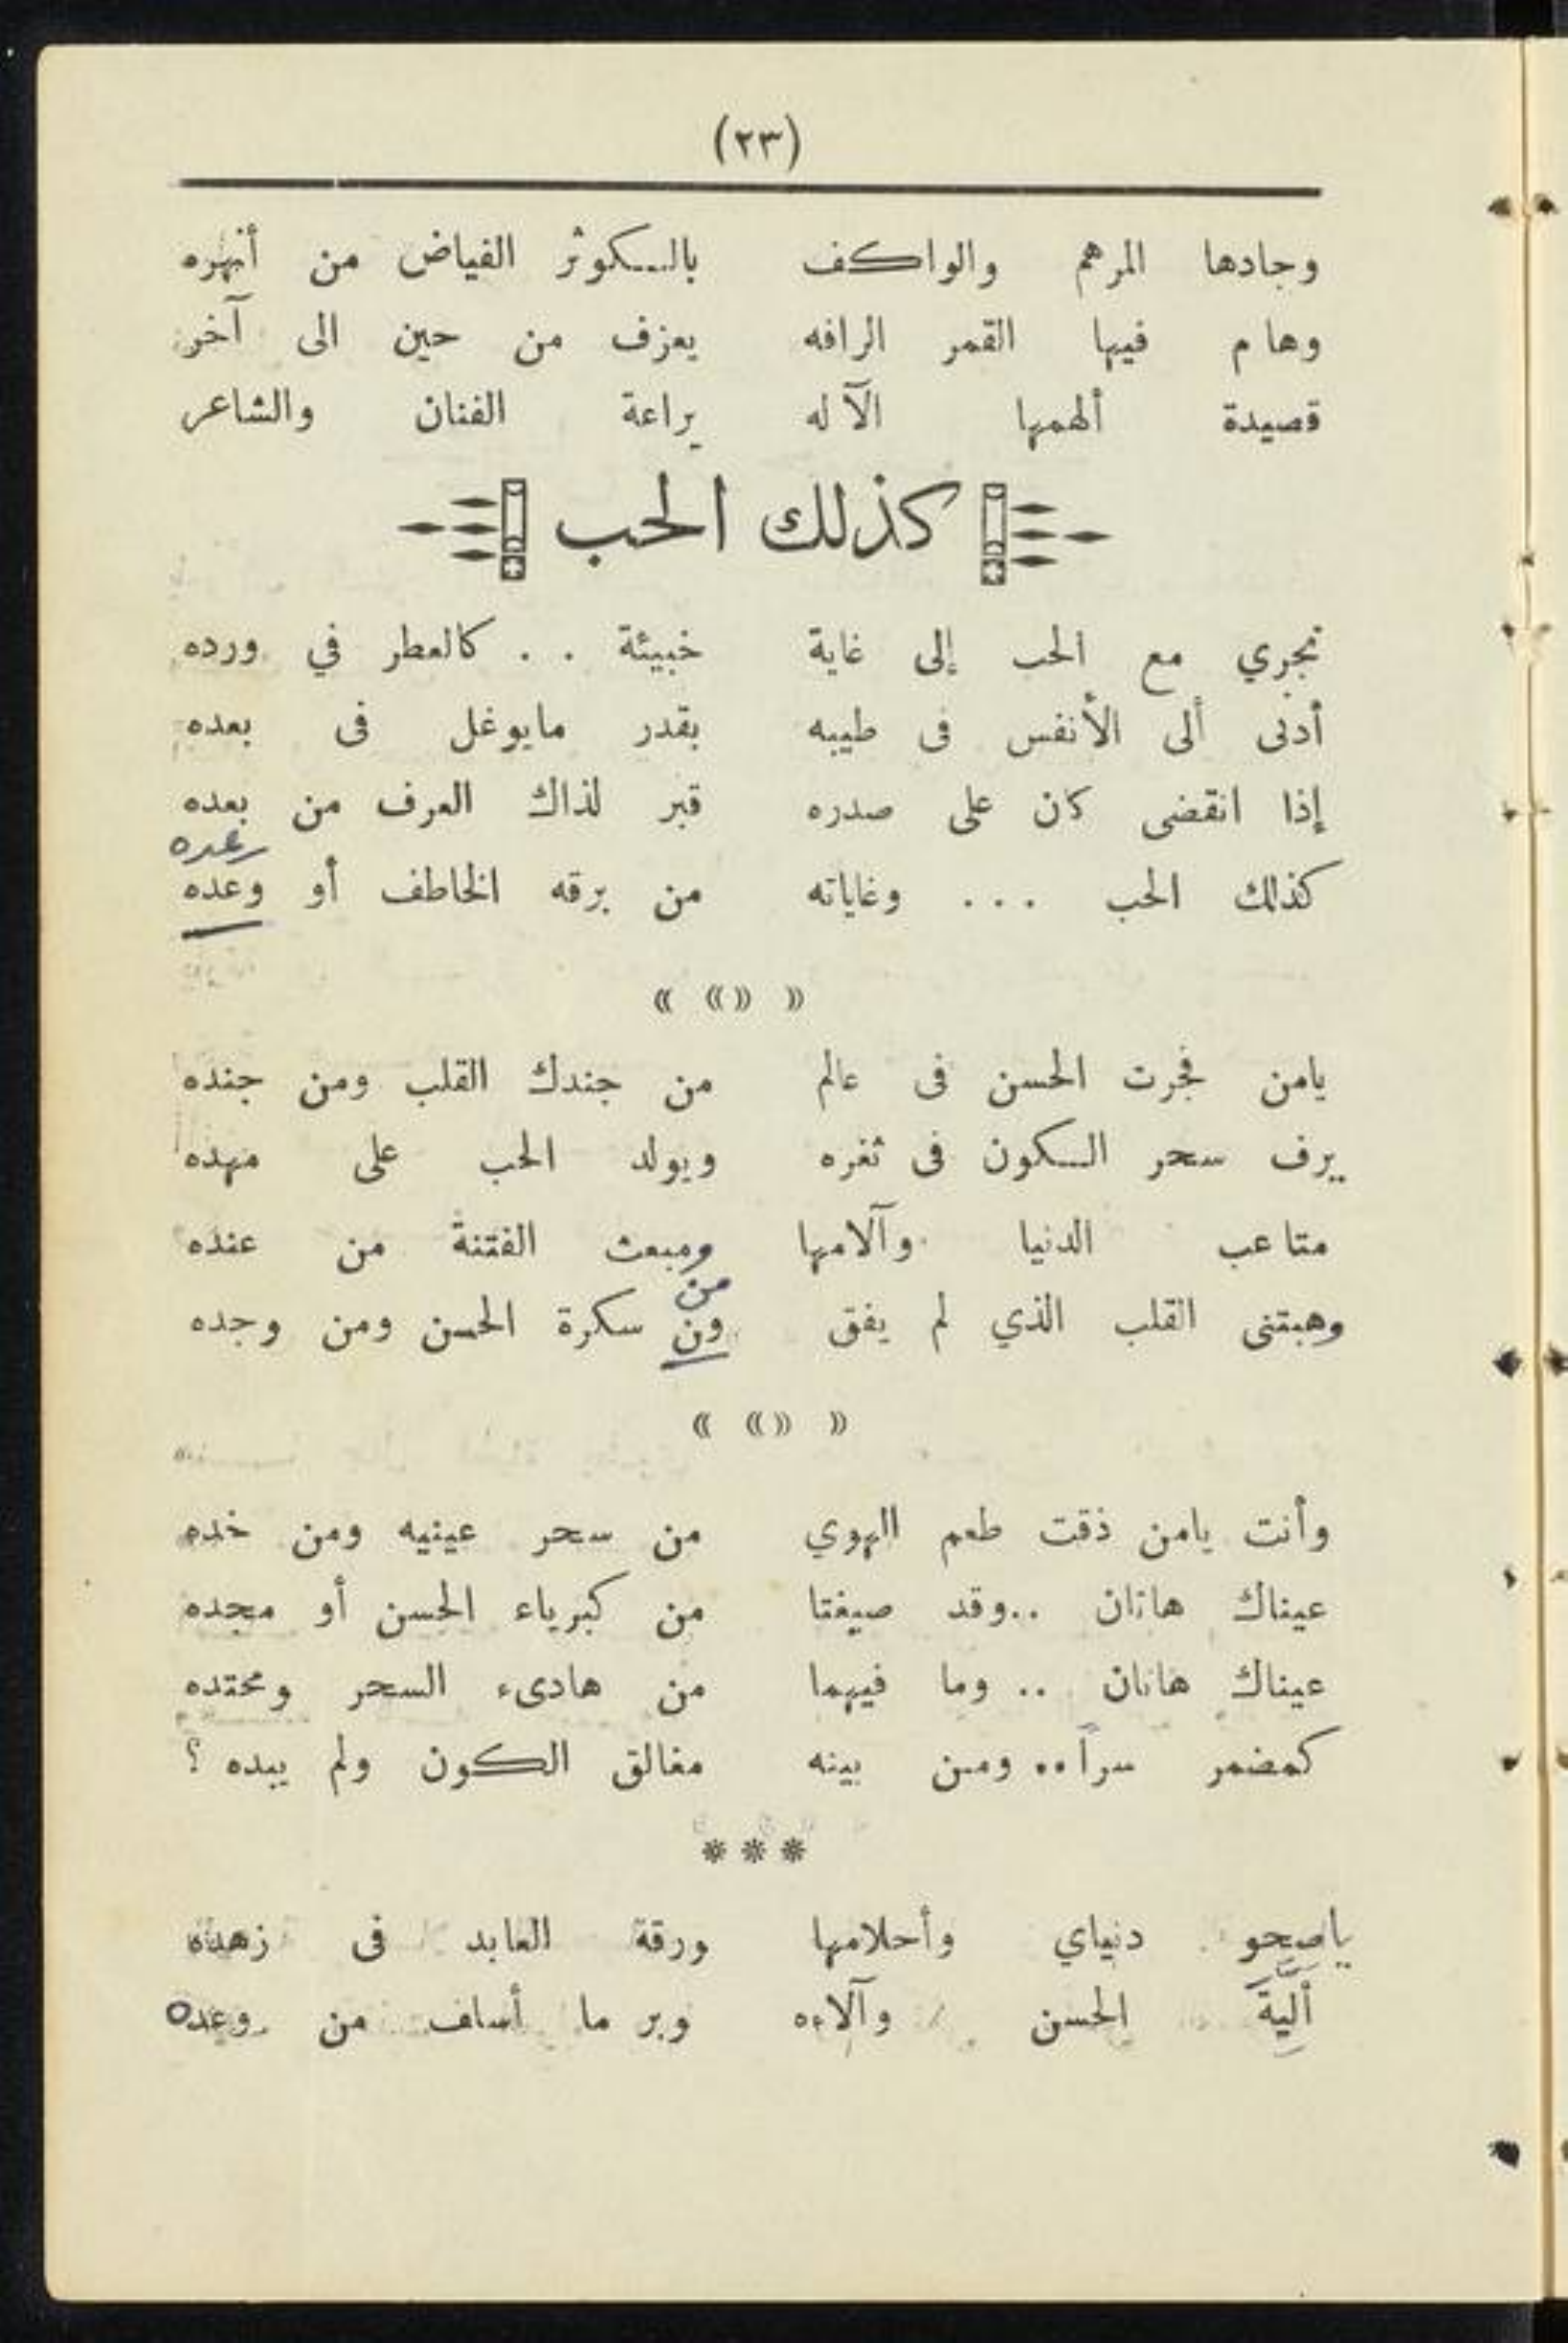 (٢٣)
وجادها المرهم والواكف بالكوثر الفياض من أنهره
وهام فيها القمر الرافه يعزف من حين الى آخر
قصيدة ألهمها الآله يراعة الفنان والشاعر
كذلك الحب
نجري مع الحب إلى غاية خبيئة . . كالعطر في ورده
أدنى ألى الأنفس فى طيبه بقدر مايوغل فى بعده
إذا انقضى كان على صدره قبر لذاك العرف من بعده
رعده
كذلك الحب . . . وغاياته من برقه الخاطف أو وعده
« «» »
يامن فجرت الحسن فى عالم من جندك القلب ومن جنده
يرف سحر السكون فى ثغره ويولد الحب على مهده
متاعب الدنيا وآلامها ومبعث الفتنة من عنده
من
وهبتنى القلب الذي لم يفق ون سكرة الحسن ومن وجده
« «» »
وأنت يامن ذقت طعم الهوي من سحر عينيه ومن خده
عيناك هاتان ..وقد صيغتا من كبرياء الحسن أو مجده
عيناك هاتان .. وما فيهما من هادىء السحر ومحتده
كمضمر سراً.. ومن بينه مغالق الكون ولم يبده ؟
***
ياصحو دنياي وأحلامها ورقة العابد فى زهده
أليةَ الحسن وآلاءه وبر ما أساف من وعده